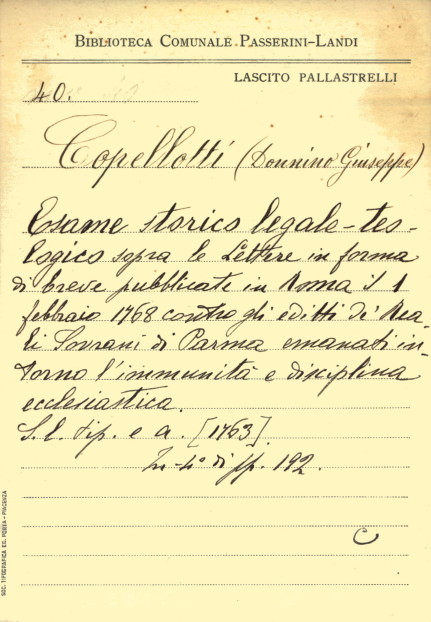 BIBLIOTECA COMUNALE PASSERINI-LANDI
LASCITO PALLASTRELLI
40.
Copellotti (Donnino Giuseppe)
Esame storico legale-teo-
logico sopra le Lettere in forma
di breve pubblicate in Roma il 1
febbraio 1768 contro gli editti de' Rea-
li Sovrani di Parma emanati in-
torno l'immunità e disciplina
ecclesiastica.
S. l. tip. e a. [1763].
In-4° di pp. 192.
C
SOC. TIPOGRAFICA ED. PORTA - PIACENZA